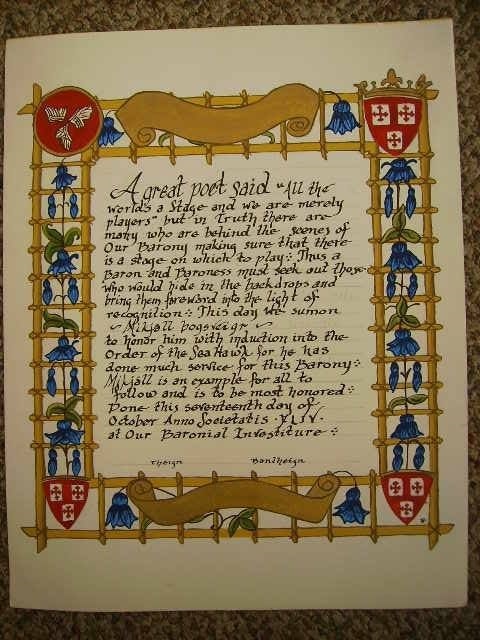 A great poet said "All the
world's a Stage and we are merely
players" but in Truth there are
many who are behind the scenes of
Our Barony making sure that there
is a stage on which to play: Thus a
Baron and Baroness must seek out those
who would hide in the backdrops and
bring them foreward into the light of
recognition: This day We sumon
~ Mikjall bogsveigr ~
to honor him with induction into the
Order of the Sea Hawk for he has
done much service for this Barony:
Mikjall is an example for all to
follow and is to be most honored:
Done this seventeenth day of
October Anno Societatis ·XLIV·
at Our Baronial Investiture :